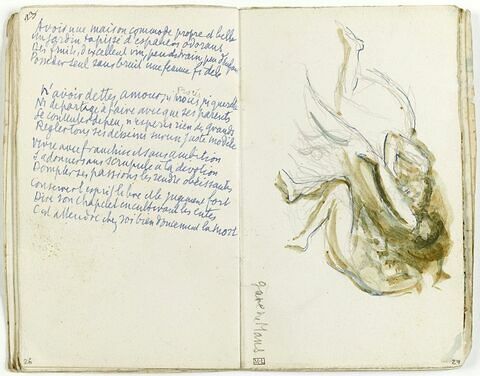 Avoir une maison commode propre et belle
Un jardin tapissé d'espaliers odorans
Des fruits, d'excellent vin, peu de train, peu d'enfans
Posséder seul sans bruit une femme fidèle
N'avoir dettes amour, ni procès, ni querelle
Ni de partage à faire avecque ses parents
Se contenter de peu, n'espérer rien des grands
Régler tous ses desseins sur un juste modèle
Vivre avec franchise et sans ambition
S'adonner sans scrupule à la dévotion
Dompter ses passions les rendre obéissantes
Conserver l'esprit libre et le jugement fort
Dire son chapelet en cultivant les entes
C'est attendre chez soi bien doucement la mort
26
gare du Mans
27